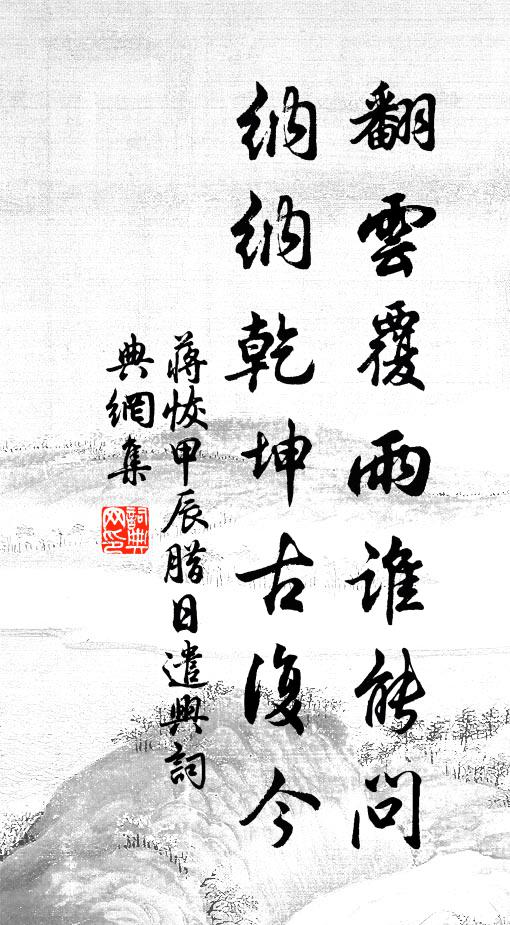 翻雲覆雨誰能問
納納乾坤古復今
蔣恢甲辰腊日遣興詞
典網集
詞典網印